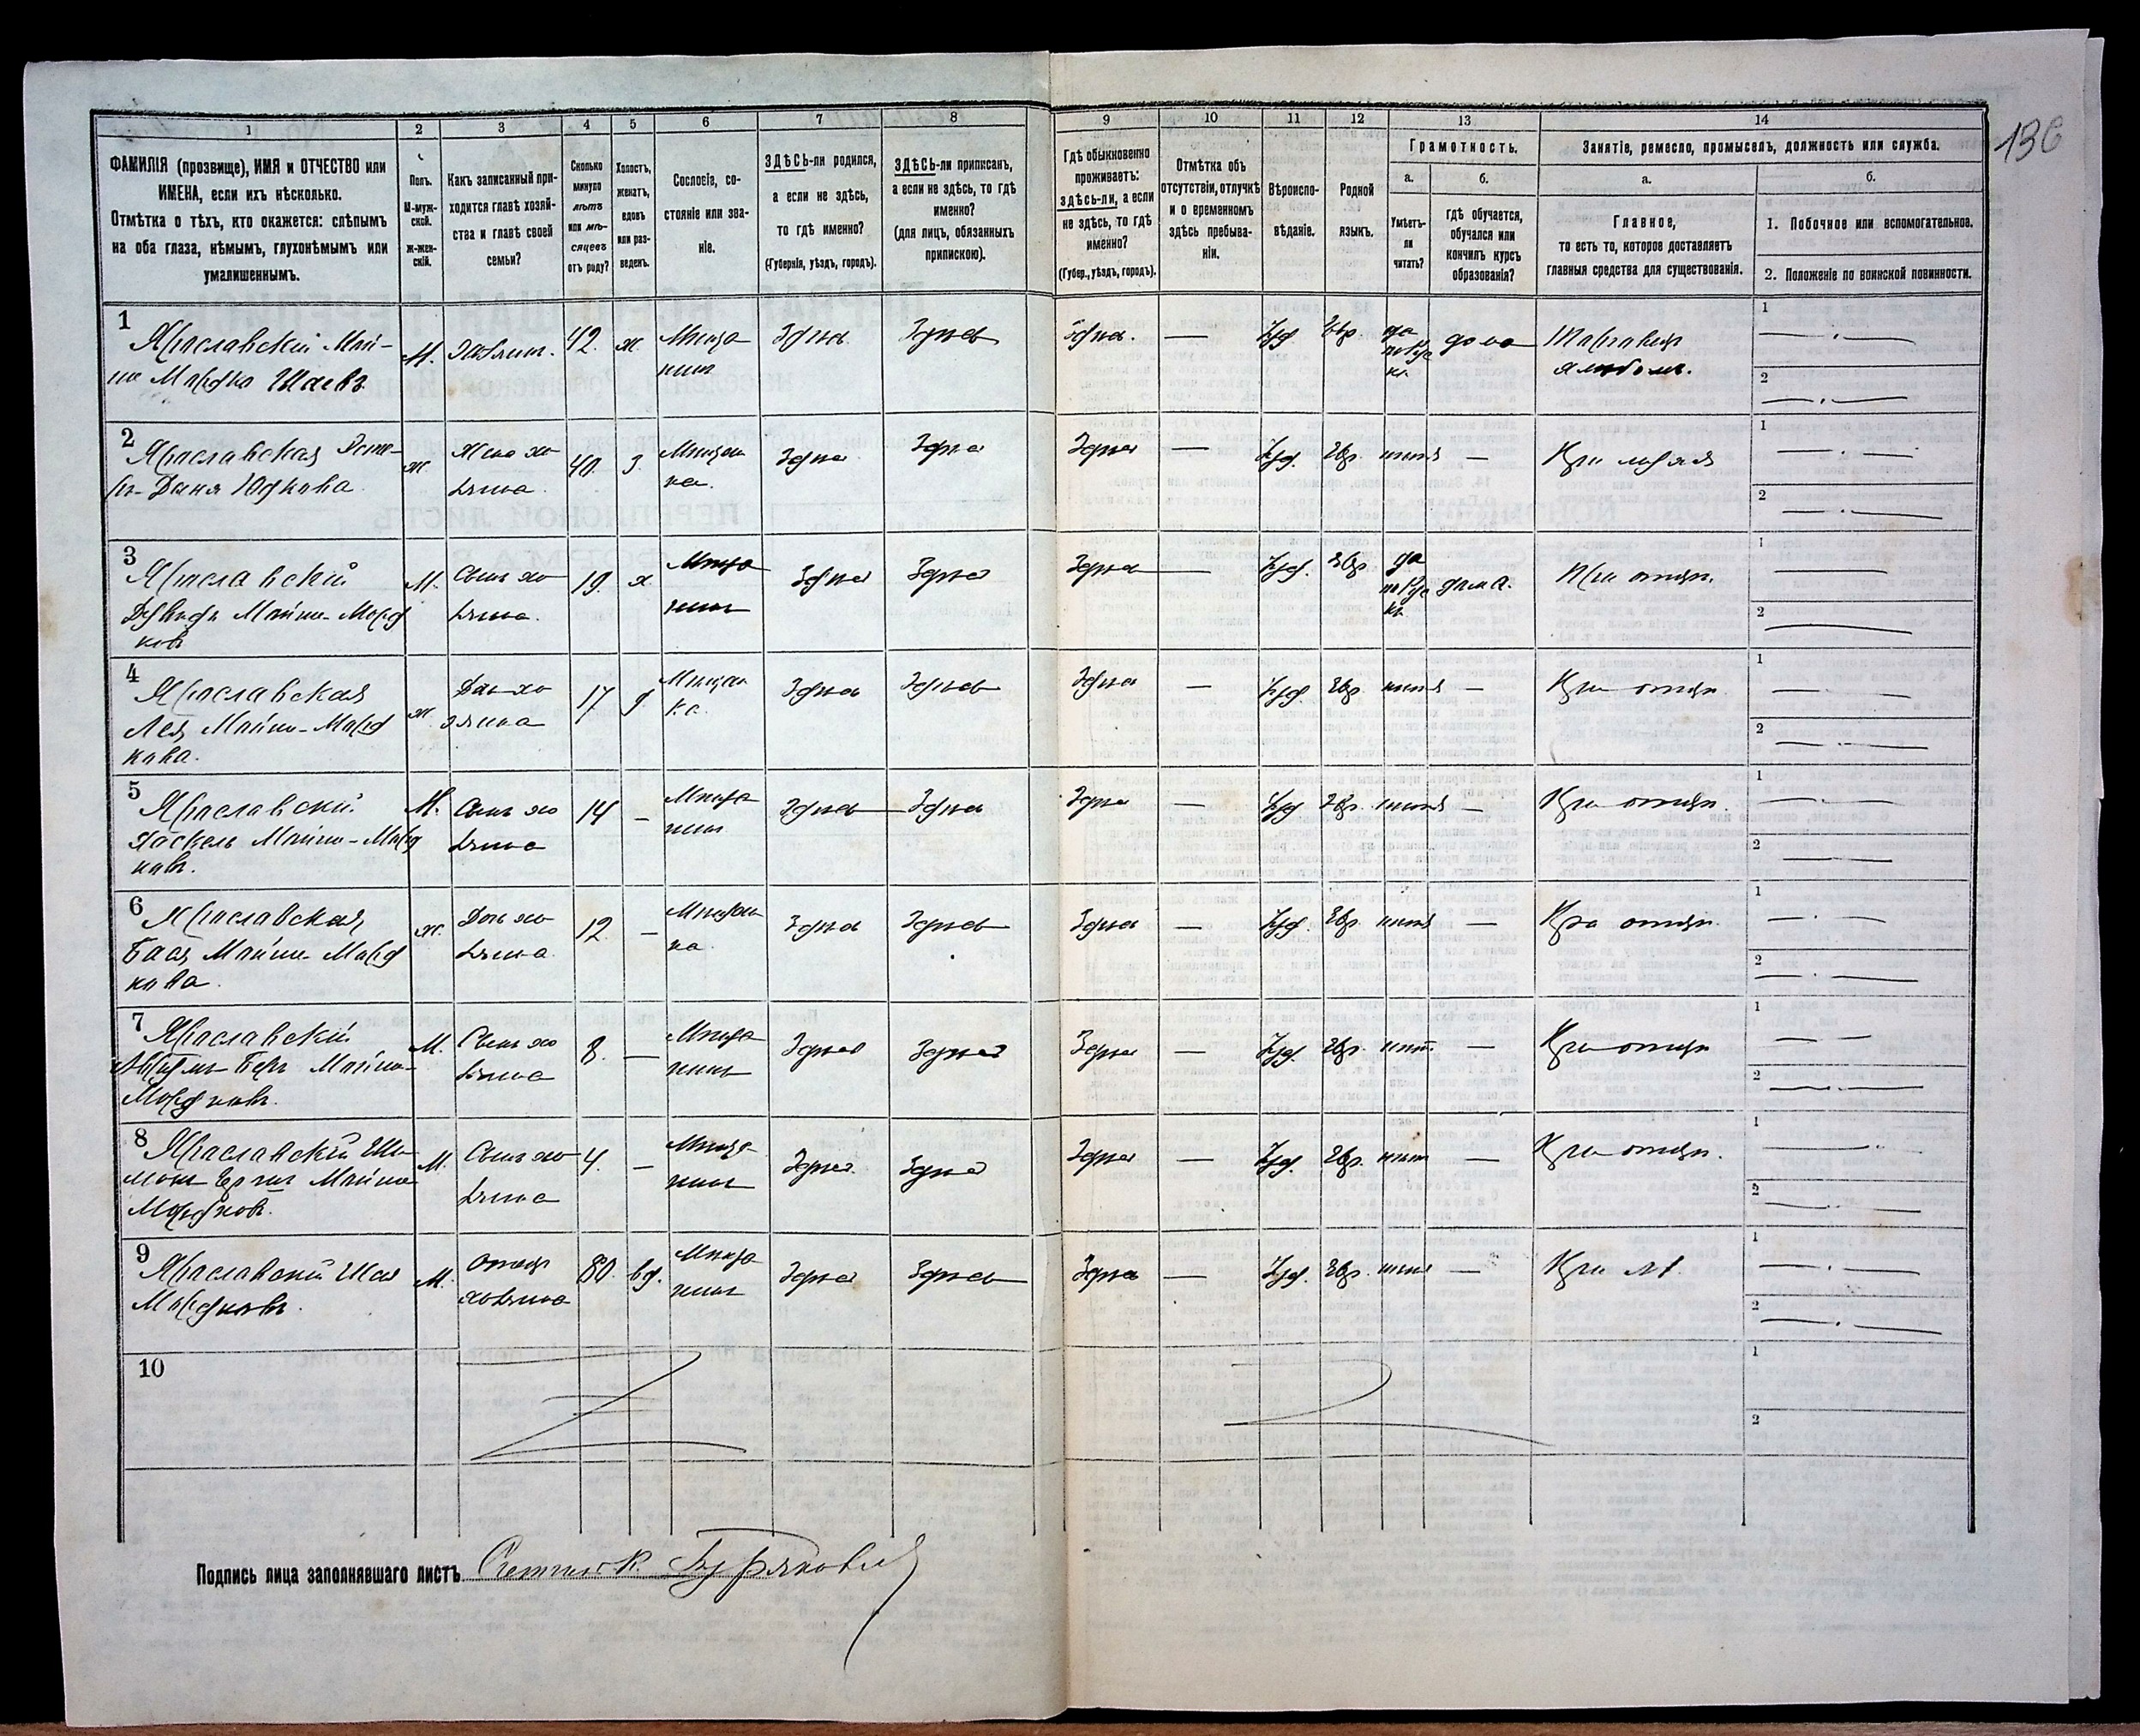 136
1 2 3 4 5 6 7 8 9 10 11 12 13 14
ФАМИЛІЯ (прозвище), ИМЯ и ОТЧЕСТВО или
ИМЕНА, если ихъ нѣсколько.
Отмѣтка о тѣхъ, кто окажется: слѣпымъ
на оба глаза, нѣмымъ, глухонѣмымъ или
умалишеннымъ.
Полъ.
М-муж-
ской.
ж-жен-
скій.
Какъ записанный при-
ходится главѣ хозяй-
ства и главѣ своей
семьи?
Сколько
минуло
лѣтъ
или мѣ-
сяцевъ
отъ роду?
Холостъ,
женатъ,
вдовъ
или раз-
веденъ.
Сословіе, со-
стояніе или зва-
ніе.
ЗДѢСЬ-ли родился,
а если не здѣсь,
то гдѣ именно?
(Губернія, уѣздъ, городъ).
ЗДѢСЬ-ли приписанъ,
а если не здѣсь, то гдѣ
именно?
(для лицъ, обязанныхъ
припискою).
Гдѣ обыкновенно
проживаетъ:
здѣсь-ли, а если
не здѣсь, то гдѣ
именно?
(Губер., уѣздъ, городъ).
Отмѣтка объ
отсутствіи, отлучкѣ
и о временномъ
здѣсь пребыва-
ніи.
Вѣроиспо-
вѣданіе.
Родной
языкъ.
Грамотность.
а.
Умѣетъ-
ли
читать?
б.
Гдѣ обучается,
обучался или
кончилъ курсъ
образованія?
Занятіе, ремесло, промыселъ, должность или служба.
а.
Главное,
то есть то, которое доставляетъ
главныя средства для существованія.
б.
1. Побочное или вспомогательное.
2. Положеніе по воинской повинности.
1
Ярославскій Мой-
ше Мордко Шаевъ
М. хозяин. 42. ж. Мѣща
нинъ
Здѣсь Здѣсь Здѣсь. — Іуд. Евр. да
по Рус
ки
дома Торговецъ
1 —
2 —
2
Ярославская Эсте-
ръ-Даня Юдкова
ж Жена хо
зяина. 40. з. Мѣщан
ка.
Здѣсь Здѣсь Здѣсь — Іуд. Евр. нѣтъ — При мужѣ
1 —
2 —
3
Ярославскій
Дувидъ Мойше-Морд
ковъ
М. Сынъ хо
зяина. 19. х. Мѣща
нинъ
Здѣсь Здѣсь Здѣсь — Іуд. Евр да
по Рус
ки
дома. При отцѣ.
1 —
2 —
4
Ярославская
Лея Мойше-Морд
кова.
ж Дочь хо
зяина 17 д Мѣщан
ка.
Здѣсь Здѣсь Здѣсь — Іуд. Евр нѣтъ — При отцѣ
1 —
2 —
5
Ярославскій
Хаскель Мойше-Морд
ковъ.
М. Сынъ хо
зяина 14 — Мѣща
нинъ
Здѣсь Здѣсь Здѣсь — Іуд Евр. нѣтъ — При отцѣ.
1 —
2 —
6
Ярославская
Бася Мойше-Морд
кова.
ж. Дочь хо
зяина. 12. — Мѣщан
ка.
Здѣсь Здѣсь Здѣсь — Іуд. Евр. нѣтъ — При отцѣ.
1 —
2 —
7
Ярославскій
Беръ Мойше-
Мордковъ.
М. Сынъ хо
зяина 8. — Мѣща
нинъ
Здѣсь Здѣсь Здѣсь — Іуд. Евр. нѣтъ — При отцѣ
1 —
2 —
8
Ярославскій Ши-
монъ Мойше
Мордковъ.
М. Сынъ хо
зяина 4. — Мѣща
нинъ
Здѣсь. Здѣсь Здѣсь — Іуд. Евр. нѣтъ — При отцѣ.
1 —
2 —
9
Ярославскій Шая
Мордковъ.
М. Отецъ
хозяина 80. вд. Мѣща
нинъ
Здѣсь Здѣсь Здѣсь — Іуд. Евр. нѣтъ — При
1 —
2 —
10
1
2
Подпись лица заполнявшаго листъ. Счетчикъ